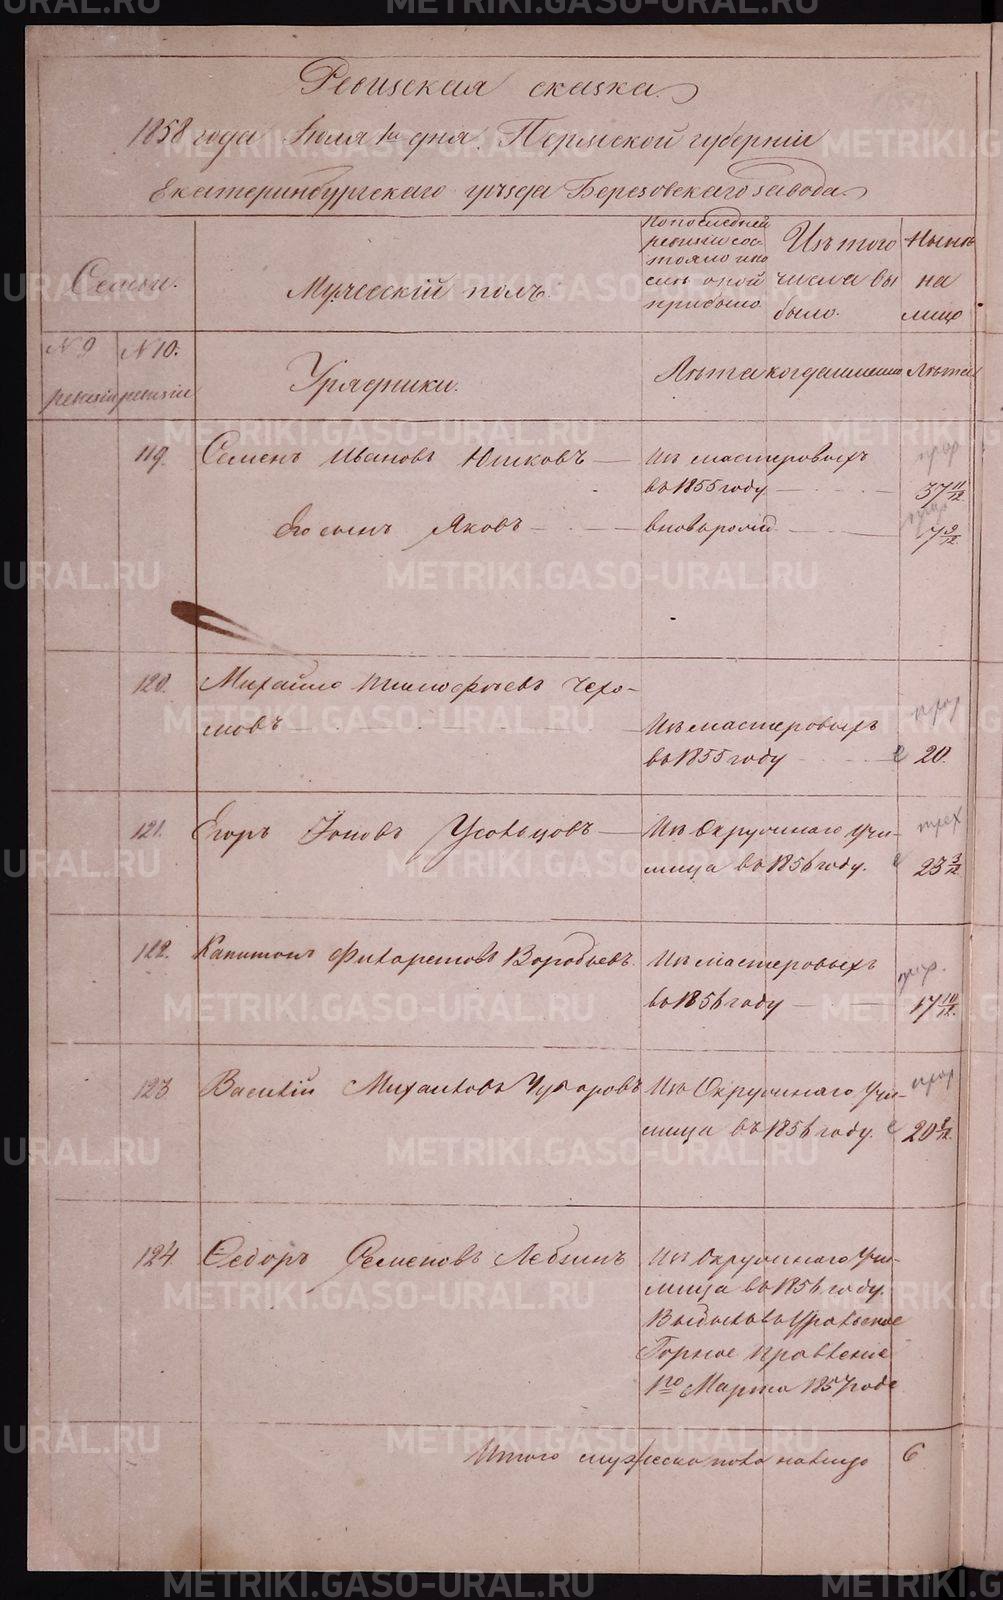 Ревизская сказка
1858 года Июля 1го дня. Пермской губерніи
Екатеринбургскаго уѣзда Березовскаго завода.
Семьи.
Мужескій полъ.
По последней
ревизіи сос-
тояло и по
слѣ оной
прибыло
Изъ того
числа вы
было.
Нынѣ
на
лицо
№ 9
ревизіи
№ 10.
ревизіи
Урядники.
Лѣта когда именно Лѣта
119. Семенъ Ивановъ Юшковъ — Изъ мастеровыхъ
въ 1855 году 37 11/12
Его сынъ Яковъ вновь рожд. 7 9/12
120. Михайло Тимофѣевъ Чехо-
мовъ Изъ мастеровыхъ
въ 1855 году 20.
121. Егоръ Іоновъ Усольцовъ — Изъ Окружнаго Учи-
лища въ 1856 году. 23 3/12
122. Капитонъ Филаретовъ Воробьевъ. Изъ мастеровыхъ
въ 1856 году 17 10/12
123. Василій Михайловъ Чуваровъ Изъ Окружнаго Учи-
лища въ 1856 году. 20 8/12
124. Федоръ Семеновъ Лебзинъ Изъ Окружнаго Учи-
лища въ 1856 году.
Выбылъ въ Уральское
Горное Правленіе
1го Марта 1857 года
Итого мужеска пола на лицо 6
METRIKI.GASO-URAL.RU